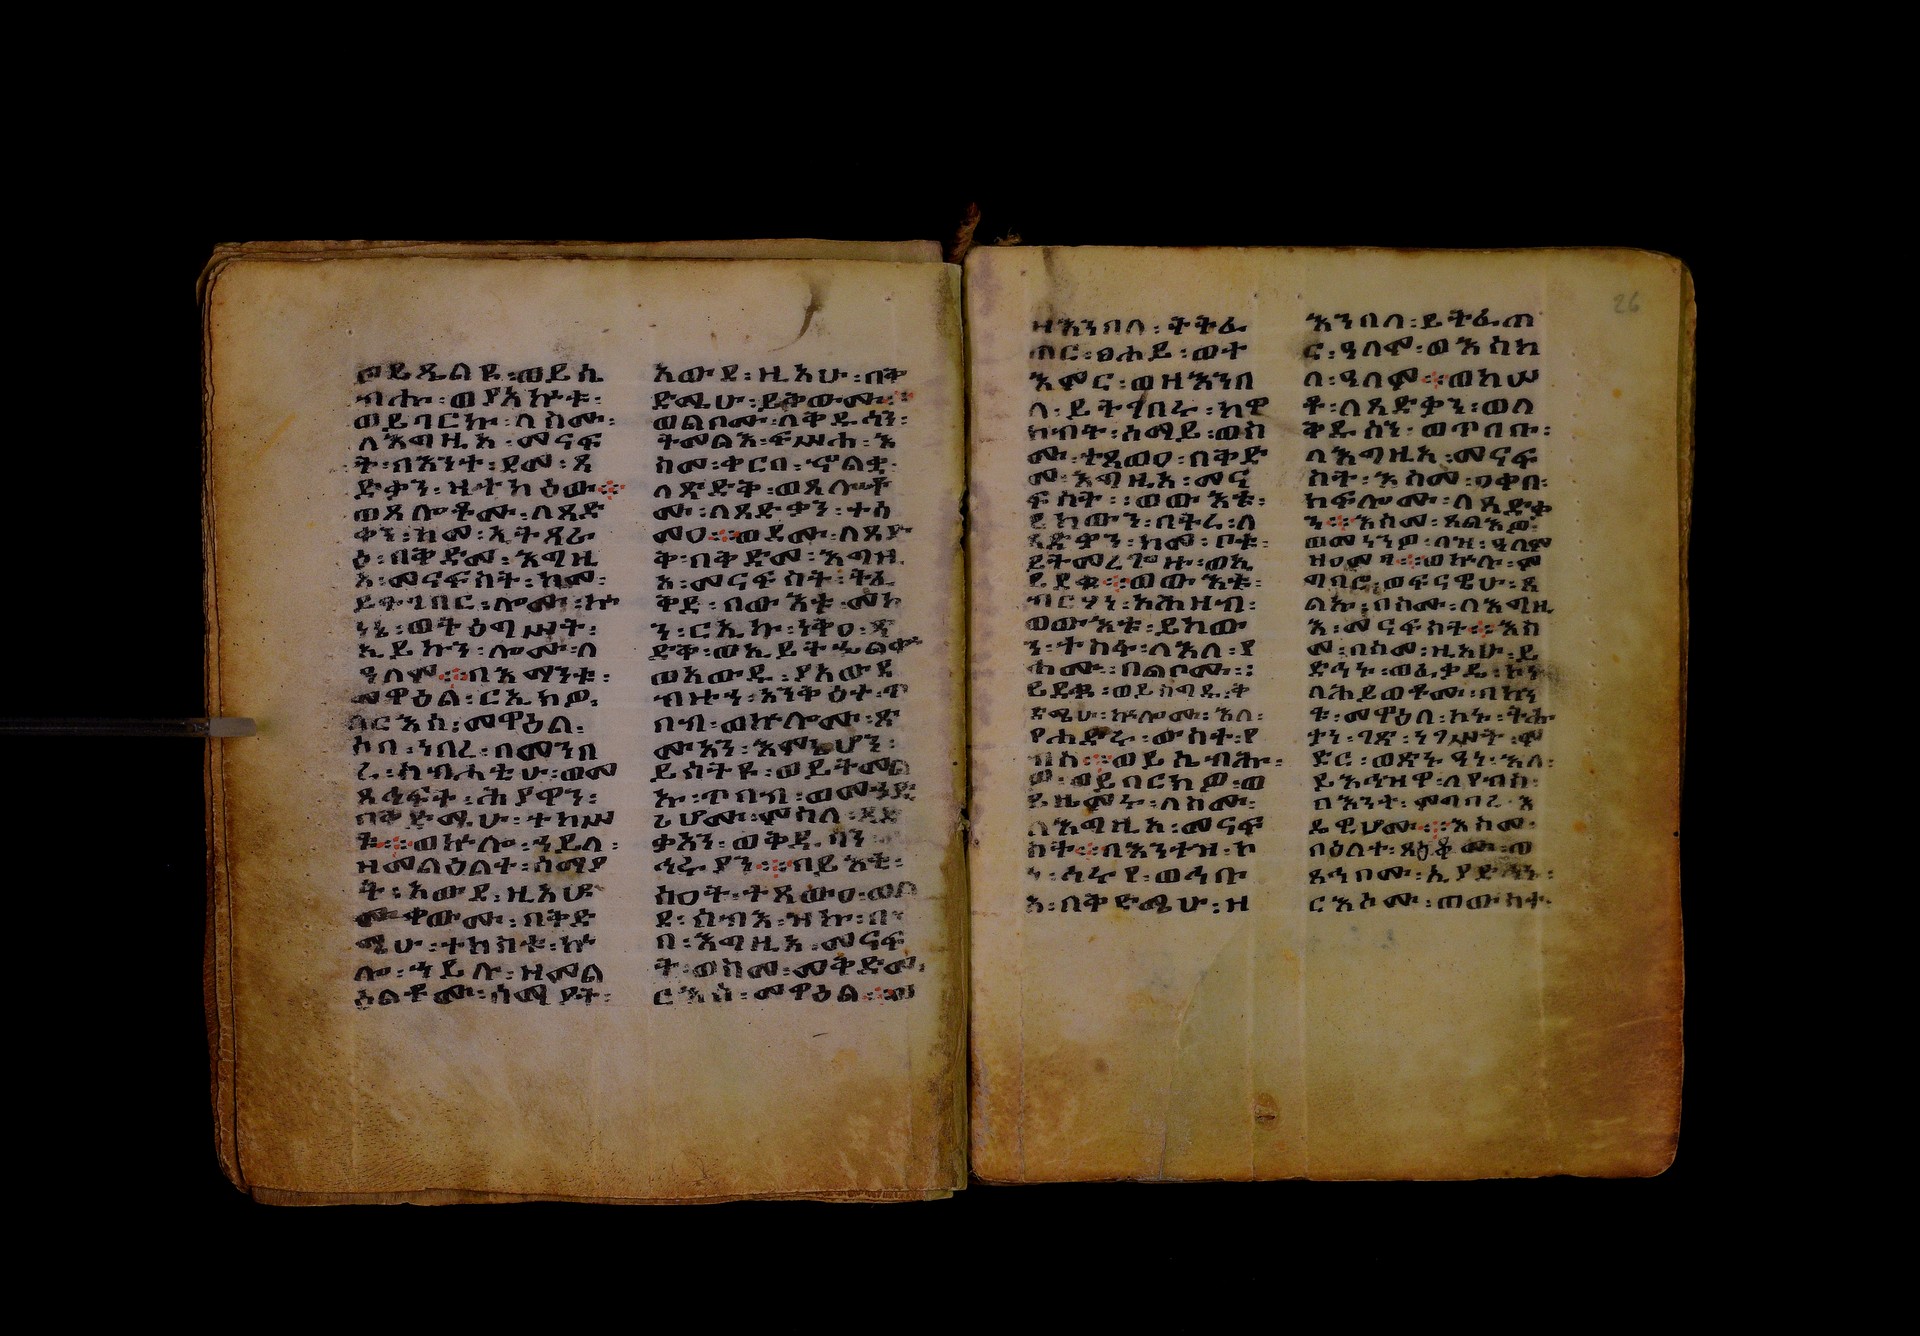 ወይጼልዩ፡ወይሴ
ብሑ፡ወያአኵቱ፡
ወይባርኩ፡ለስሙ፡
ለእግዚአ፡መናፍ
ት፡በእንተ፡ደመ፡ጻ
ድቃን፡ዘተክዕወ፨
ወጸሎቶሙ፡ለጻድ
ቃን፡ከመ፡ኢትጸራ
ዕ፡በቅድመ፡እግዚ
አ፡መናፍስት፡ከመ፡
ይትገበር፡ሎሙ፡ኵ
ነኔ፡ወትዕግሥት፡
ኢይኩን፡ሎሙ፡ለ
ዓለም፨በእማንቱ፡
መዋዕል፡ርኢክዎ፡
ለርእሰ፡መዋዕል፡
ሶበ፡ነበረ፡በመንበ
ረ፡ስብሐቲሁ፡ወመ
ጻሕፍት፡ሕያዋን፡
በቅድሜሁ፡ተከሥ
ቱ፨ወኵሎ፡ኃይለ፡
ዘመልዕልተ፡ሰማያ
ት፡አውደ፡ዚአሁ
ቀውሙ፡በቅድ
ሜሁ፡ተከስቱ፡ኵ
ሎ፡ኃይሎ፡ዘመል
ዕልቶሙ፡ሰማያት፡
አውደ፡ዚአሁ፡በቅ
ድሜሁ፡ይቀውሙ፨
ወልቦሙ፡ለቅዱሳን፡
ተመልአ፡ፍሥሐ፡እ
ስመ፡ቀርበ፡ኆልቋ፡
ለጽድቅ፡ወጸሎቶ
ሙ፡ለጻድቃን፡ተሰ
ምዐ፨ወደሙ፡ለጻድ
ቅ፡በቅድመ፡እግዚ
አ፡መናፍስት፡ትፈ
ቅደ፡በውእቱ፡መካ
ን፡ርኢኩ፡ነቅዐ፡ጽ
ድቅ፡ወኢይትኌልቍ
ወአውዱ፡ያአውደ
ብዙን፡አንቅዕተ፡ጥ
በብ፡ወኵሎሙ፡ጽ
ሙአን፡እምኔሆን፡
ይሰትዩ፡ወይትመል
ኡ፡ጥበብ፡ወመኃድ
ሪሆሙ፡ምስለ፡ጻድ
ቃአን፡ወቅዱሳን
ኅሩያን፨በይእቲ፡
ሰዐት፡ተጸውዐ፡ወል
ደ፡ሰብእ፡ዝኩ፡በኀ
በ፡እግዚአ፡መናፍ
ት፡ወስመ፡መቅድመ፡
ርእሰ፡መዋዕል፨ወ
ዘእንበለ፡ትትፈ
ጠር፡ፀሐይ፡ወተ
አምር፡ወዘእንበ
ለ፡ይትገበሩ፡ከዋ
ክብት፡ሰማይ፡ወስ
ሙ፡ተጸውዐ፡በቅድ
መ፡እግዚአ፡መና
ፍስት፡፡ወውእቱ፡
ይከውን፡በትረ፡ለ
ጻድቃን፡ከመ፡ቦቱ፡
ይትመረጐዙ፡ወኢ
ይደቁ፨ወውእቱ፡
ብርሃነ፡አሕዛብ፡
ወውእቱ፡ይከው
ን፡ተስፋ፡ለእለ፡የ
ሐሙ፡በልቦሙ፡፡
ይደቁ፡ወይሰግዱ፡ቅ
ድሜሁ፡ኵሎሙ፡እለ፡
የሐድሩ፡ውስተ፡የ
ብስ፨ወይሴብሕዎ፡
ወይባርክዎ፡ወ
ይዜምሩ፡ለስሙ፡
ለእግዚአ፡መናፍ
ስት፨በእንተዝ፡ኮ
ነ፡ኅሩየ፡ወኅቡ
አ፡በቅድሜሁ፡ዘ
እንበለ፡ይትፈጠ
ር፡ዓለም፡ወእስከ
ለ፡ዓለም፨ወከሠ
ቶ፡ለጻድቃን፡ወለ
ቅዱሳን፡ወጥበቡ፡
ለእግዚአ፡መናፍ
ስት፡እስመ፡ዐቀበ፡
ክፍሎሙ፡ለጻድቃ
ን፨እስመ፡ጸልእዎ፡
ወመነንዎ፡ለዝ፡ዓለም
ዘዐመፃ፨ወኵሎ፡ም
ግባሮ፡ወፍናዊሁ፡ጸ
ልኡ፡በስሙ፡ለእግዚ
አ፡መናፍስት፨እስ
መ፡በስመ፡ዚአሁ፡ይ
ድኅኑ፡ወፈቃዴ፡ኮነ
ለሕይወቶሙ፡በክን
ቱ፡መዋዕል፡ኮኑ፡ትሑ
ታነ፡ገጽ፡ነገሥት፡ም
ድር፡ወጽኑዓነ፡እለ፡
ይእኅዝዋ፡ለየብስ፡
በእንተ፡ምግባረ፡እ
ደዊሆሙ፨እስመ፡
በዕለተ፡ጻዕቆሙ፡ወ
ጸኀቦሙ፡ኢያድኅኑ፡